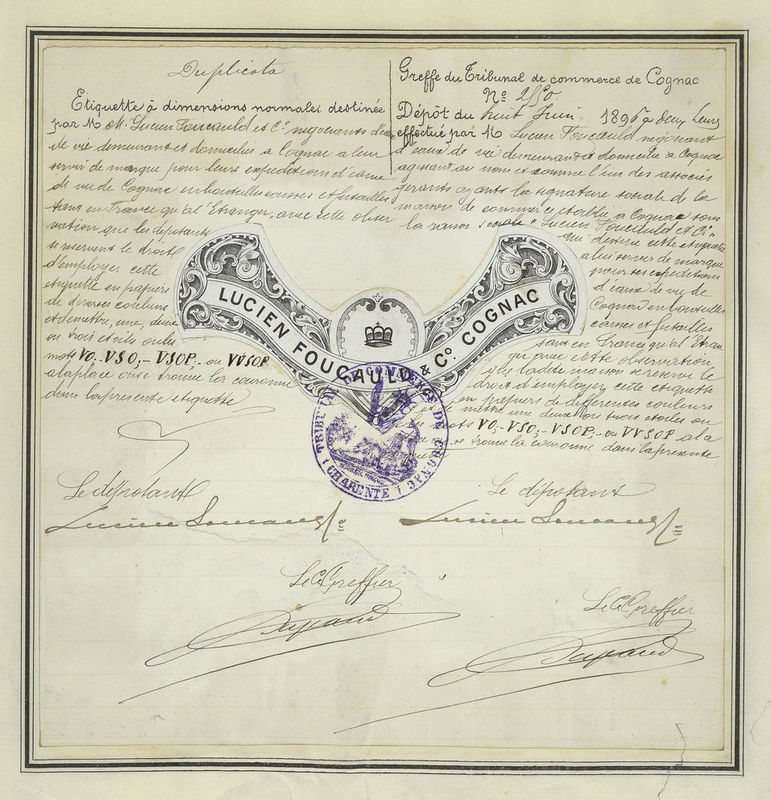 Duplicata
Etiquette à dimensions normales destinée
par M. Lucien Foucauld et Cº négociants d'eaux
de vie demeurant et domiciliés à Cognac a leur
servir de marque pour leurs expéditions d'eaux
de vie de Cognac en bouteilles caisses et futailles
tant en France qu'à l'Etranger, avec cette obser
vation que les déposants
se reservent le droit
d'employer cette
étiquette en papiers
de diverses couleurs
et de mettre, une, deux
ou trois étoiles ou les
mots VO,- VSO,- VSOP,- ou VVSOP
a la place où se trouve la couronne
dans la présente etiquette
Greffe du Tribunal de commerce de Cognac
Nº
Dépôt du huit Juin 189 à deux heures
effectué par M Lucien Foucauld négociant
d'eaux de vie demeurant et domicilié à Cognac
agissant au nom et comme l'un des associés
gérants ayant la signature sociale de la
maison de commerce établie à Cognac sous
la raison sociale "Lucien Foucauld et Cie"
qui destine cette etiquette
a leur servir de marque
pour ses expéditions
d'eaux de vie de
Cognac en bouteilles
caisses et futailles
tant en France qu'à l'Etran
ger avec cette observation
que ladite maison se reserve le
droit d'employer cette etiquette
en papiers de differentes couleurs
et de mettre une deux ou trois etoiles ou
les mots VO,- VSO,- VSOP,- ou VVSOP a la
trouve la couronne dans la présente
LUCIEN FOUCAULD & Cº. COGNAC
TRIBUNAL DE COMMERCE DE
(CHARENTE)
Le déposant
Le déposant
Le C. Greffier
Le C. Greffier